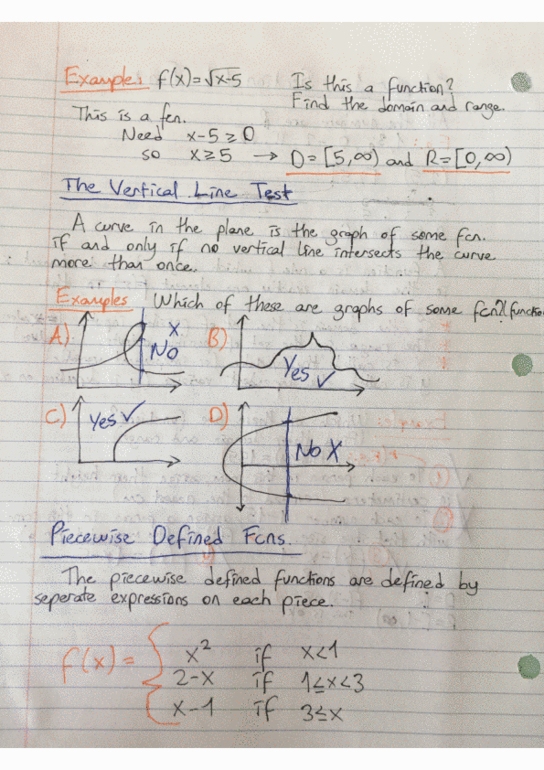 Example: f(x)=√x-5 Is this a function?
Find the domain and range.
This is a fcn.
Need x-5≥0
so x≥5 → D=[5,∞) and R=[0,∞)
The Vertical Line Test
A curve in the plane is the graph of some fcn.
if and only if no vertical line intersects the curve
more than once.
Examples Which of these are graphs of some fcn?(functio
A) X No B) Yes ✓
C) Yes ✓ D) No X
Piecewise Defined Fcns.
The piecewise defined functions are defined by
seperate expressions on each piece.
f(x)= { x² if x<1
2-x if 1≤x<3
x-1 if 3≤x